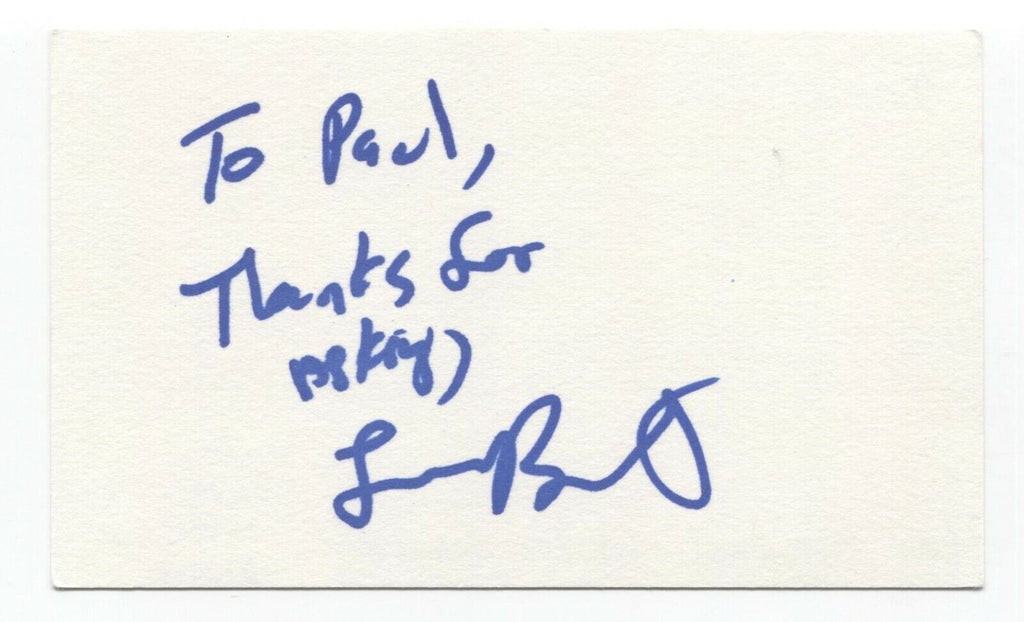 To Paul,
Thanks for
asking,